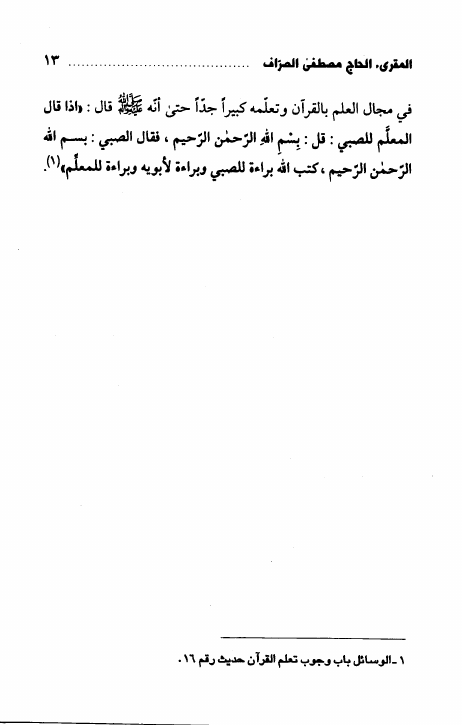 المقرىء الحاج مصطفى الصرّاف ........................................ ١٣
في مجال العلم بالقرآن وتعلّمه كبيراً جدّاً حتىٰ أنّه ﷺ قال : «اذا قال
المعلَّم للصبي : قل : بِسْمِ اللهِ الرّحمٰن الرّحيم ، فقال الصبي : بسم الله
الرّحمٰن الرّحيم ، كتب الله براءة للصبي وبراءة لأبويه وبراءة للمعلِّم»(١).
١ ـ الوسائل باب وجوب تعلم القرآن حديث رقم ١٦ .